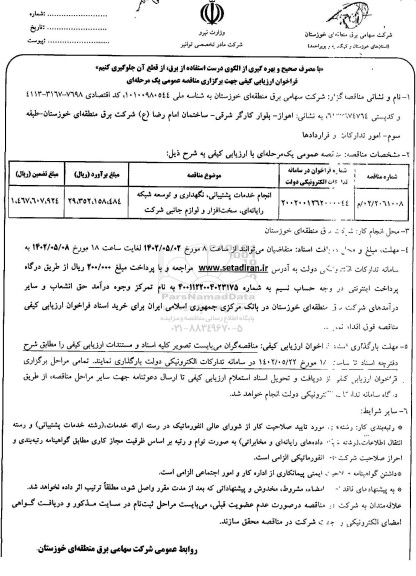 شماره:
تاریخ:
پیوست:
وزارت نیرو
شرکت مادر تخصصی توانیر
شرکت سهامی برق منطقه‌ای خوزستان
«با مصرف صحیح و بهره گیری از الگوی درست استفاده از برق، از قطع آن جلوگیری کنیم»
فراخوان ارزیابی کیفی جهت برگزاری مناقصه عمومی یک مرحله‌ای
۱- نام و نشانی مناقصه‌گزار: شرکت سهامی برق منطقه‌ای خوزستان به شناسه ملی ۱۰۱۰۰۹۸۰۵۴۴، کد اقتصادی ۷۶۹۸-۳۱۶۷-۴۱۱۳
و کدپستی به نشانی: اهواز- بلوار کارگر شرقی- ساختمان امام رضا (ع) شرکت برق منطقه‌ای خوزستان-طبقه
سوم- امور تدارکات و قراردادها
۲- مشخصات مناقصه: مناقصه عمومی یک‌مرحله‌ای با ارزیابی کیفی به شرح ذیل:
شماره مناقصه شماره فراخوان در سامانه تدارکات الکترونیکی دولت موضوع مناقصه مبلغ برآورد (ریال) مبلغ تضمین (ریال)
۰۲/۲۰۶۱۰۰۸/م ۲۰۰۲۰۰۱۲۶۲۰۰۰۰۴۴ انجام خدمات پشتیبانی، نگهداری و توسعه شبکه رایانه‌ای، سخت‌افزار و لوازم جانبی شرکت ۲۹،۳۵۲،۱۵۸،۴۸۴ ۱،۴۶۷،۶۰۷،۹۲۴
۳- محل انجام کار: شرکت برق منطقه‌ای خوزستان
۴- مهلت، مبلغ و محل دریافت اسناد: متقاضیان می‌توانند از ساعت ۸ مورخ ۱۴۰۲/۰۵/۰۲ لغایت ساعت ۱۸ مورخ ۱۴۰۲/۰۵/۰۸ به
سامانه تدارکات الکترونیکی دولت به آدرس www.setadiran.ir مراجعه و با پرداخت مبلغ ۴۰۰/۰۰۰ ریال از طریق درگاه
پرداخت اینترنتی در وجه حساب نسیم به شماره ۴۰۰۱۱۲۲۰۰۴۰۲۳۱۷۵ به نام تمرکز وجوه درآمد حق انشعاب و سایر
درآمدهای شرکت برق منطقه‌ای خوزستان در بانک مرکزی جمهوری اسلامی ایران برای خرید اسناد فراخوان ارزیابی کیفی
مناقصه فوق اقدام
ParsNamadData
پایگاه اطلاع رسانی مناقصه و مزایده
۰۲۱-۸۸۳۴۹۶۷۰-۵
۵- مهلت بارگذاری اسناد فراخوان ارزیابی کیفی: مناقصه‌گران می‌بایست تصویر کلیه اسناد و مستندات ارزیابی کیفی را مطابق شرح
دفترچه اسناد تا ساعت مورخ ۱۴۰۲/۰۵/۲۲ در سامانه تدارکات الکترونیکی دولت بارگذاری نمایند. تمامی مراحل برگزاری
فراخوان ارزیابی کیفی از دریافت و تحویل اسناد استعلام ارزیابی کیفی تا ارسال دعوتنامه جهت سایر مراحل مناقصه، از طریق
درگاه سامانه تدارکات الکترونیکی دولت انجام خواهد شد.
۶- سایر شرایط:
* رتبه‌بندی کار: رشته مورد تایید صلاحیت کار از شورای عالی انفورماتیک در رسته ارائه خدمات،(رشته خدمات پشتیبانی) و رسته
انتقال اطلاعات،(رشته داده‌های رایانه‌ای و مخابراتی) به صورت توام و رتبه بر اساس ظرفیت مجاز کاری مطابق گواهینامه رتبه‌بندی و
احراز صلاحیت شرکت انفورماتیکی الزامی است.
* داشتن گواهینامه صلاحیت ایمنی پیمانکاری از اداره کار و امور اجتماعی الزامی است.
* به پیشنهادهای فاقد امضاء، مشروط، مخدوش و پیشنهاداتی که بعد از مدت مقرر واصل شود، مطلقاً ترتیب اثر داده نخواهد شد.
علاقه‌مندان به شرکت در مناقصه درصورت عدم عضویت قبلی، می‌بایست مراحل ثبت‌نام در سایت مذکور و دریافت گواهی
امضای الکترونیکی جهت شرکت در مناقصه محقق سازند.
روابط عمومی شرکت سهامی برق منطقه‌ای خوزستان